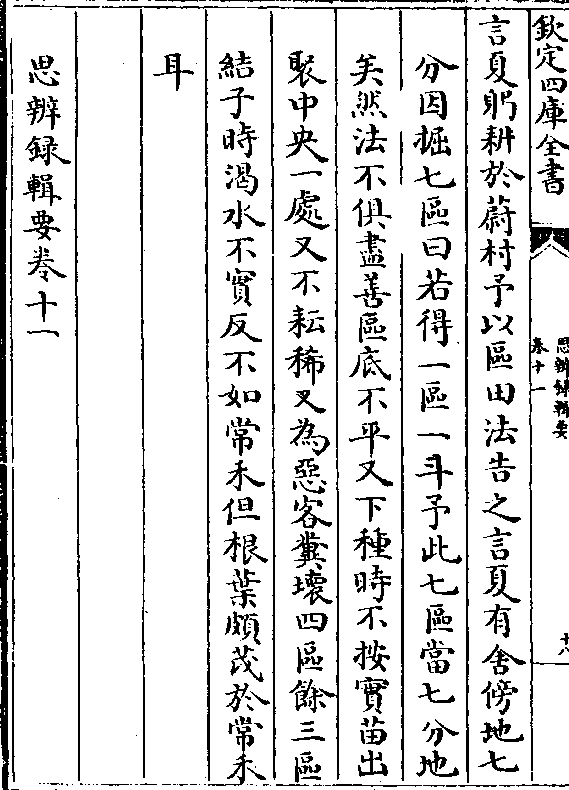 欽定四庫全書
思辨録輯要
卷十一
十八
言夏躬耕於蔚村予以區田法告之言夏有舍傍地七
分因掘七區曰若得一區一斗予此七區當七分地
矣然法不俱盡善區底不平又下種時不按實苗出
聚中央一處又不耘稀又為惡客糞壞四區餘三區
結子時渴水不實反不如常禾但根葉頗茂於常禾
耳
思辨録輯要卷十一